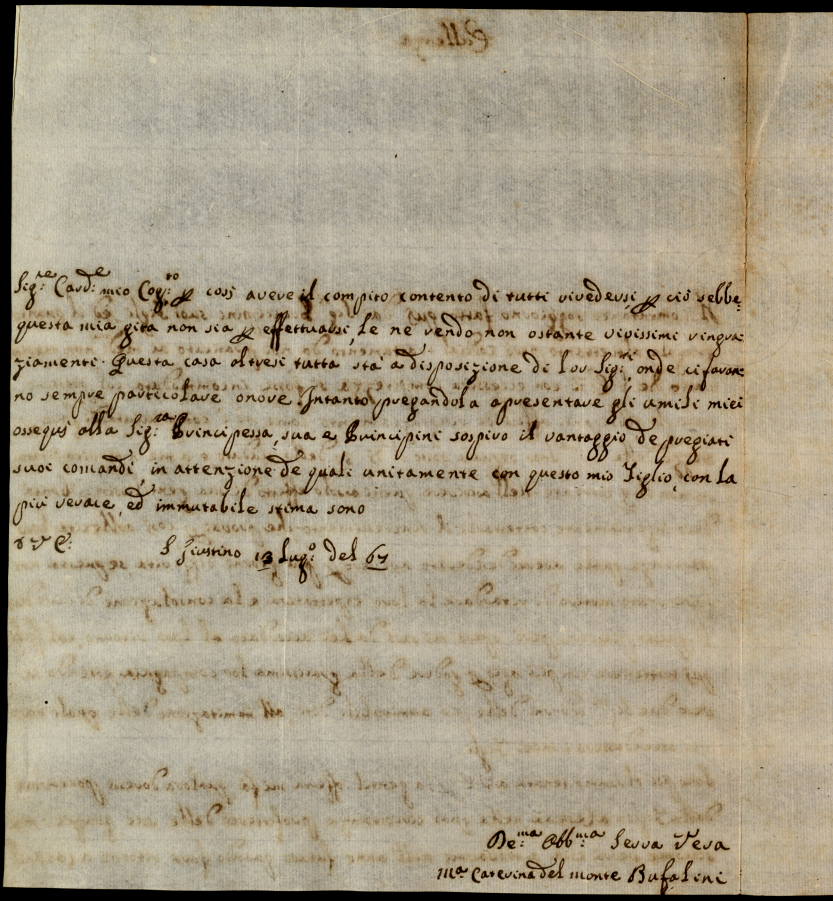 Sig:re Card:e mio Cog:to p cosi avere il compito contento di tutti rivedersi, p ciò sebbe=
questa mia gita non sia p effettuarsi, Le ne rendo non ostante vivissimi ringra=
ziamenti. Questa casa altresi tutta stà a disposizione di lor Sig:ri, onde ci faran=
no sempre particolare onore. Intanto pregandola apresentare gli umili miei
ossequi alla Sig:ra Principessa, sua e Principini sospiro il vantaggio de pregiati
suoi comandi, in attenzione de quali unitamente con questo mio Figlio, con la
più verace, ed immutabile stima sono
S Giustino 13 Lug:o del 67
De:ma Obb:ma Serva Vera
Ma Caterina del monte Bufalini